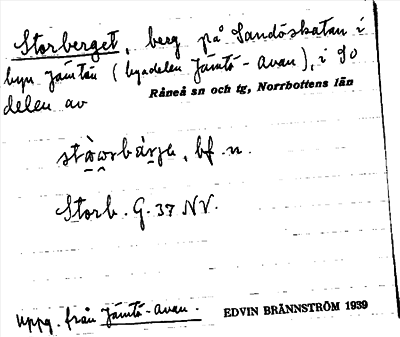 Storberget, berg på Sandöskatan i
byn Jämtön (byadelen Jämtö-Avan), i SO
delen av Råneå sn och tg, Norrbottens län
bf. n.
Storb. G. 37 NV.
Uppg. från Jämtö-Avan.
EDVIN BRÄNNSTRÖM 1939